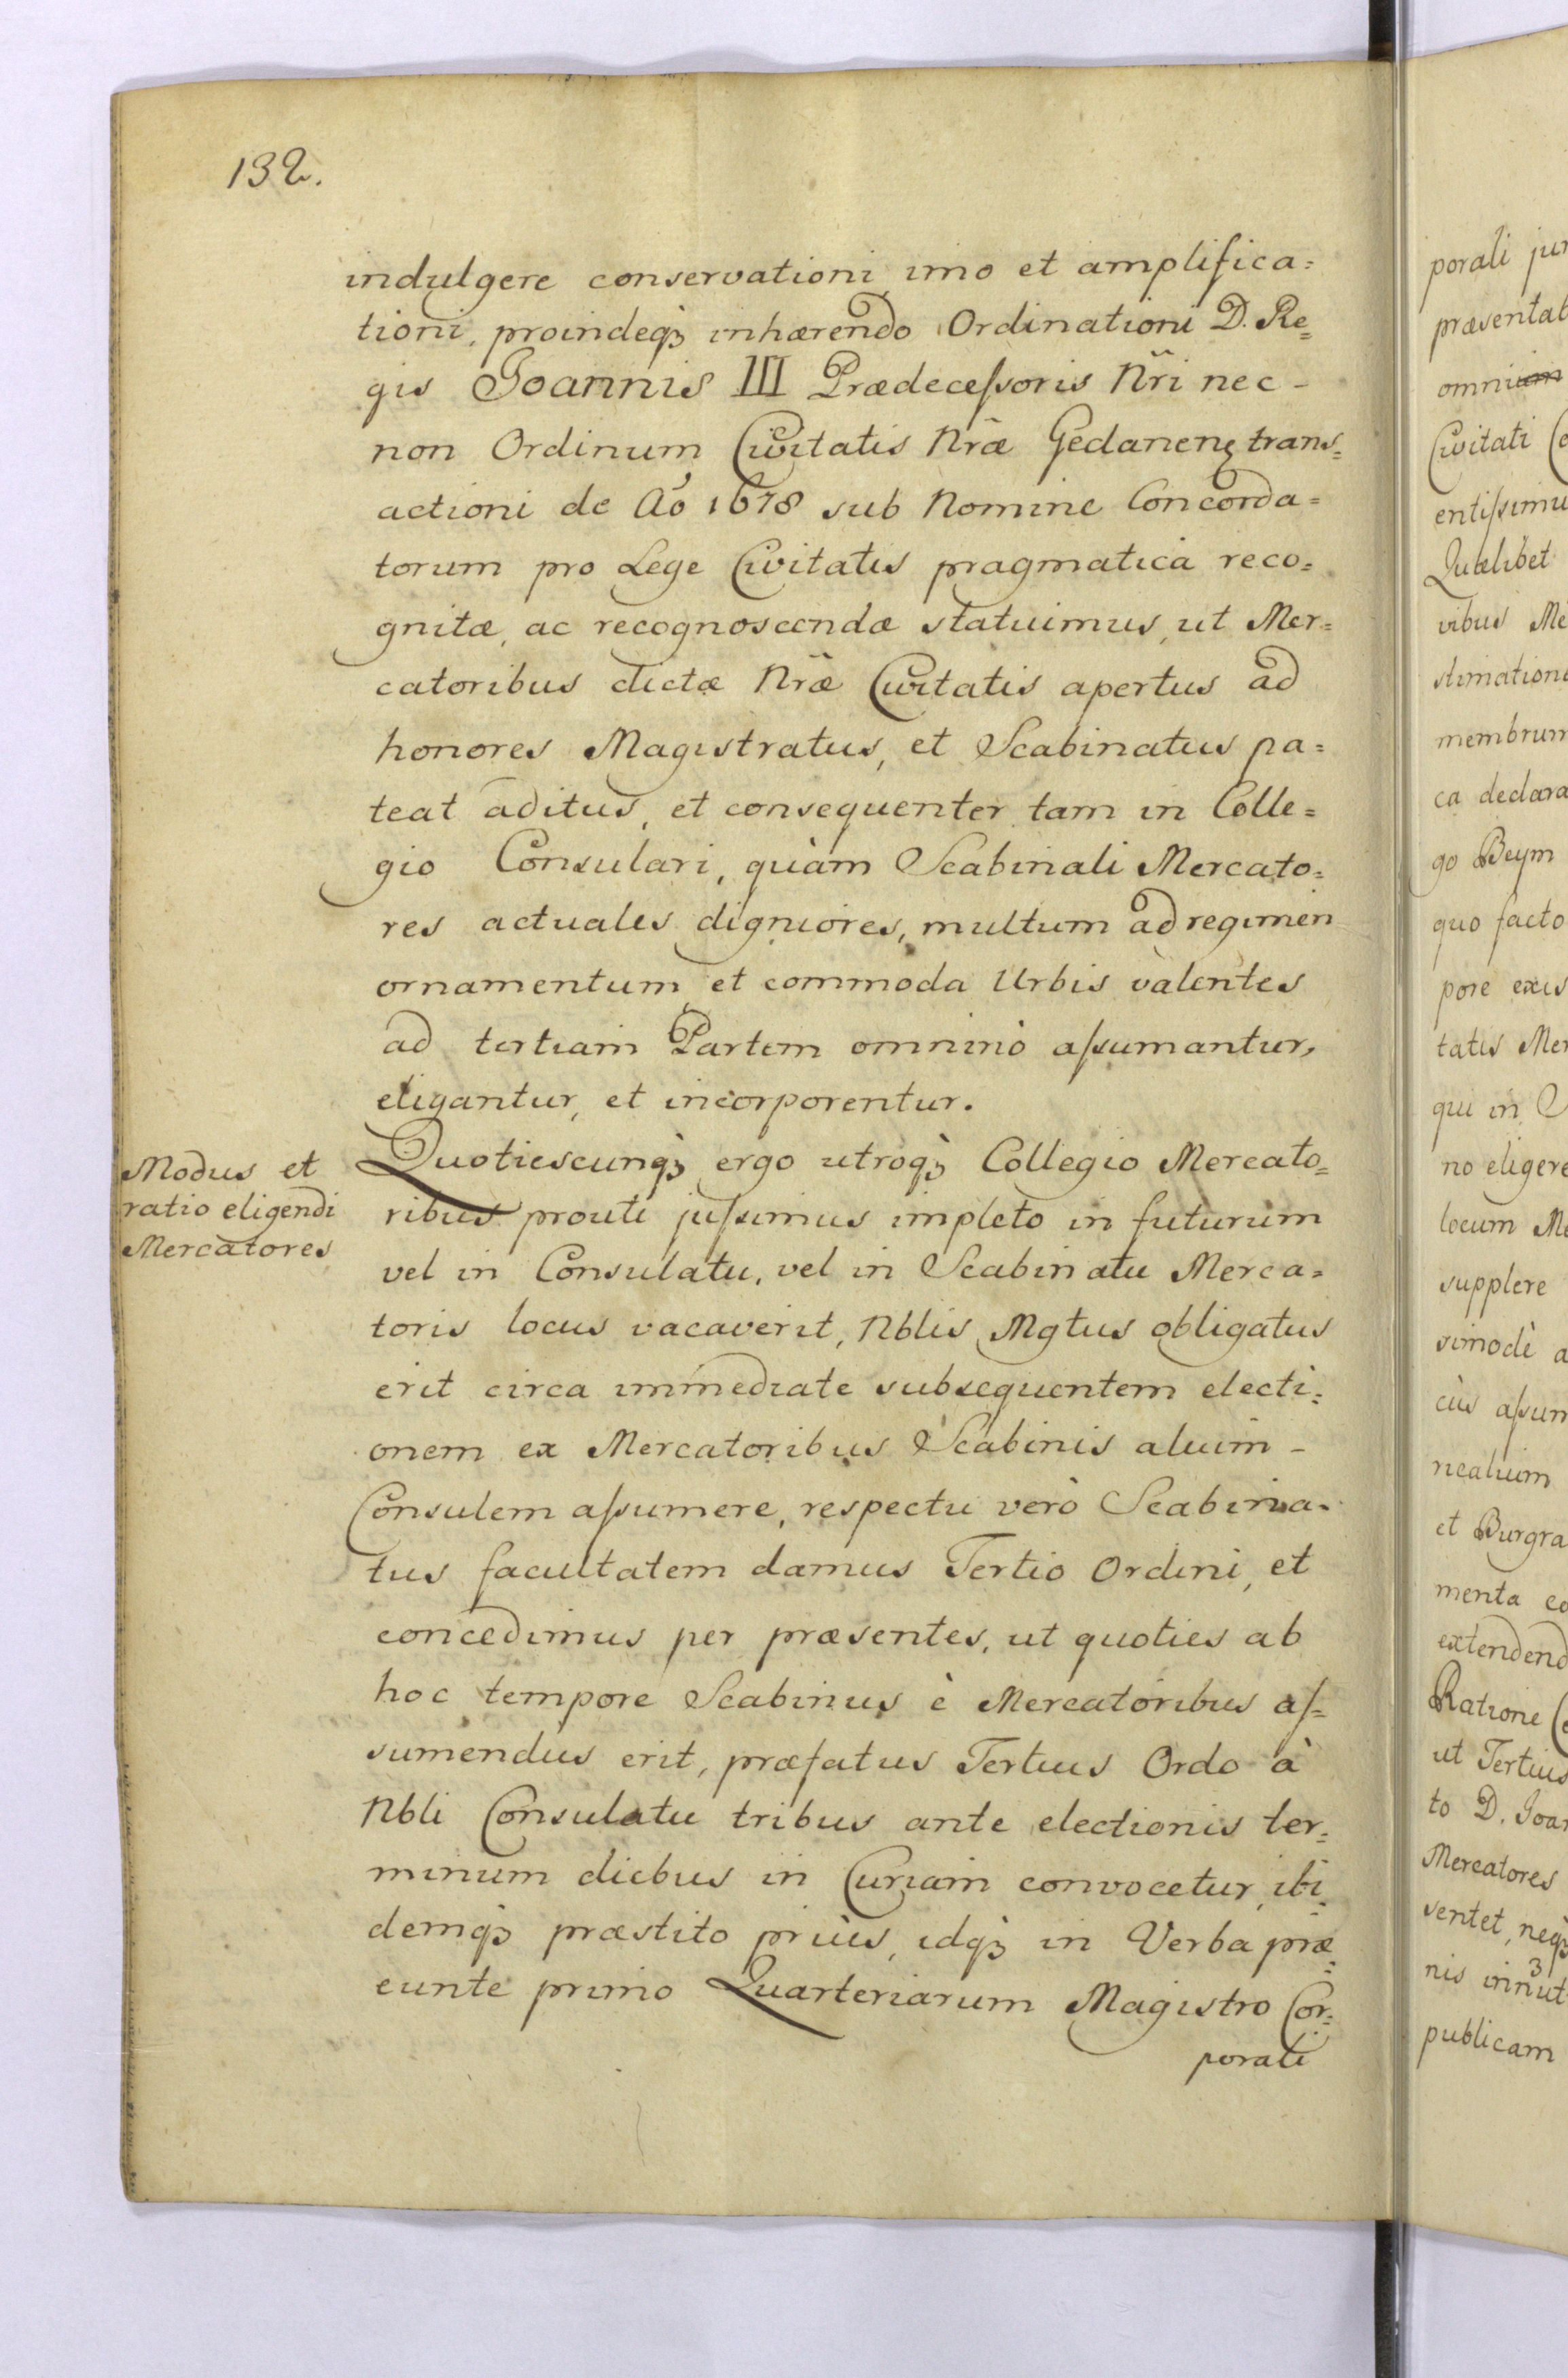 132.
indulgere conservationi imo et amplifica=
tioni, proindeqꝫ inhærendo Ordinationi D. Re=
gis Joannis III Prædecessoris Nr̃i nec-
non Ordinum Civitatis Nr̃æ Gedanenꝫ trans=
actioni de Ao 1678 sub Nomine Concorda=
torum pro Lege Civitatis pragmatica reco=
gnitæ, ac recognoscendæ statuimus, ut Mer=
catoribus dictæ Nr̃æ Civitatis apertus ad
honores Magistratus, et Scabinatus pa=
teat aditus, et consequenter tam in Colle=
gio Consulari, quàm Scabinali Mercato=
res actuales digniores, multum ad regimen
ornamentum et commoda Urbis valentes
ad tertiam Partem omninò assumantur,
eligantur, et incorporentur.
Modus et
ratio eligendi
Mercatores
Quotiescunqꝫ ergo utroqꝫ Collegio Mercato=
ribus prouti jussimus impleto in futurum
vel in Consulatu, vel in Scabinatu Merca=
toris locus vacaverit, Nblis Mgtus obligatus
erit circa immediate subsequentem electi=
onem ex Mercatoribus Scabinis alium-
Consulem assumere, respectu verò Scabina=
tus facultatem damus Tertio Ordini, et
concedimus per præsentes, ut quoties ab
hoc tempore Scabinus è Mercatoribus as=
sumendus erit, præfatus Tertius Ordo à
Nbli Consulatu tribus ante electionis ter=
minum diebus in Curiam convocetur, ibi=
demqꝫ præstito priùs, idqꝫ in Verba præ=
eunte primo Quarteriarum Magistro Cor=
porali
porali jur
præsentat
omnium
Civitati
entissimu
Quælibet
ribus Me
stimation
membrum
ca declara
go Beym
quo facto
pore exis
tatis Mer
qui in
no eligere
locum Me
supplere
simodè a
ciis assum
nealium
et Burgra
menta eo
extendend
Ratione
ut Tertius
to D. Joan
Mercatores
sentet, neqꝫ
nis innut
publicam